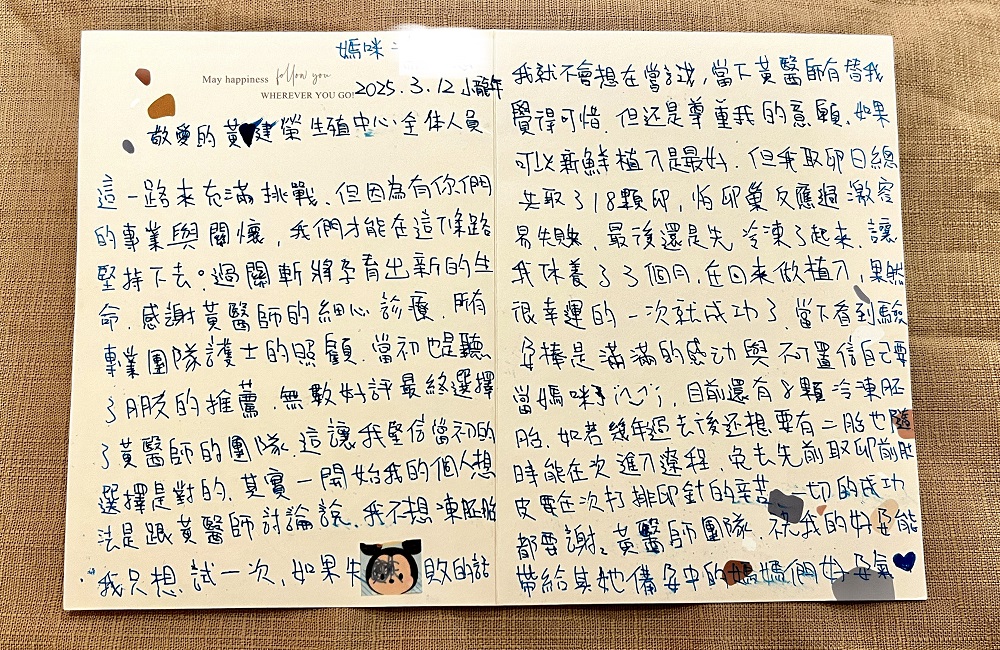 媽咪
May happiness follow you
WHEREVER YOU GO!
2025.3.12 小龍年
敬愛的黃建榮生殖中心全体人員
這一路來充滿挑戰、但因為有你們
的專業與關懷，我們才能在這條路
堅持下去。過關斬將孕育出新的生
命．感謝黃醫師的細心診療．所有
專業團隊護士的照顧．當初也是聽
了朋友的推薦．無數好評最終選擇
了黃醫師的團隊．這讓我堅信當初的
選擇是對的．其實一開始我的個人想
法是跟黃醫師討論說．我不想凍胚胎
我只想試一次，如果失敗的話
我就不會想在嘗試，當下黃醫師有替我
覺得可惜．但还是尊重我的意願．如果
可以新鮮植入是最好．但我取卵日總
共取了18顆卵，怕卵巢反應過激容
易失敗．最後還是先冷凍了起來．讓
我休養了3個月，在回來做植入，果然
很幸運的一次就成功了．當下看到驗
孕棒是滿滿的感动與不可置信自己要
當媽咪，目前還有8顆冷凍胚
胎．如若幾年過去後还想要有二胎也隨
時能在次進入療程．免去先前取卵前肚
皮要在次打排卵針的辛苦．一切的成功
都要謝謝黃醫師團隊．祝我的好孕能
帶給其她備孕中的媽媽們好孕氣